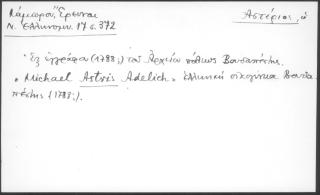 Λάμπρου, Ἔρευναι
Ν. Ἑλληνομν. 17 σ. 372
Ἀστέριος, ὁ
Ἐξ ἐγγράφου (1788;) τοῦ Ἀρχείου πόλεως Βουδαπέστης.
"Michael Astris Adelich" Ἑλληνικὴ οἰκογένεια Βουδα
πέστης (1788;).